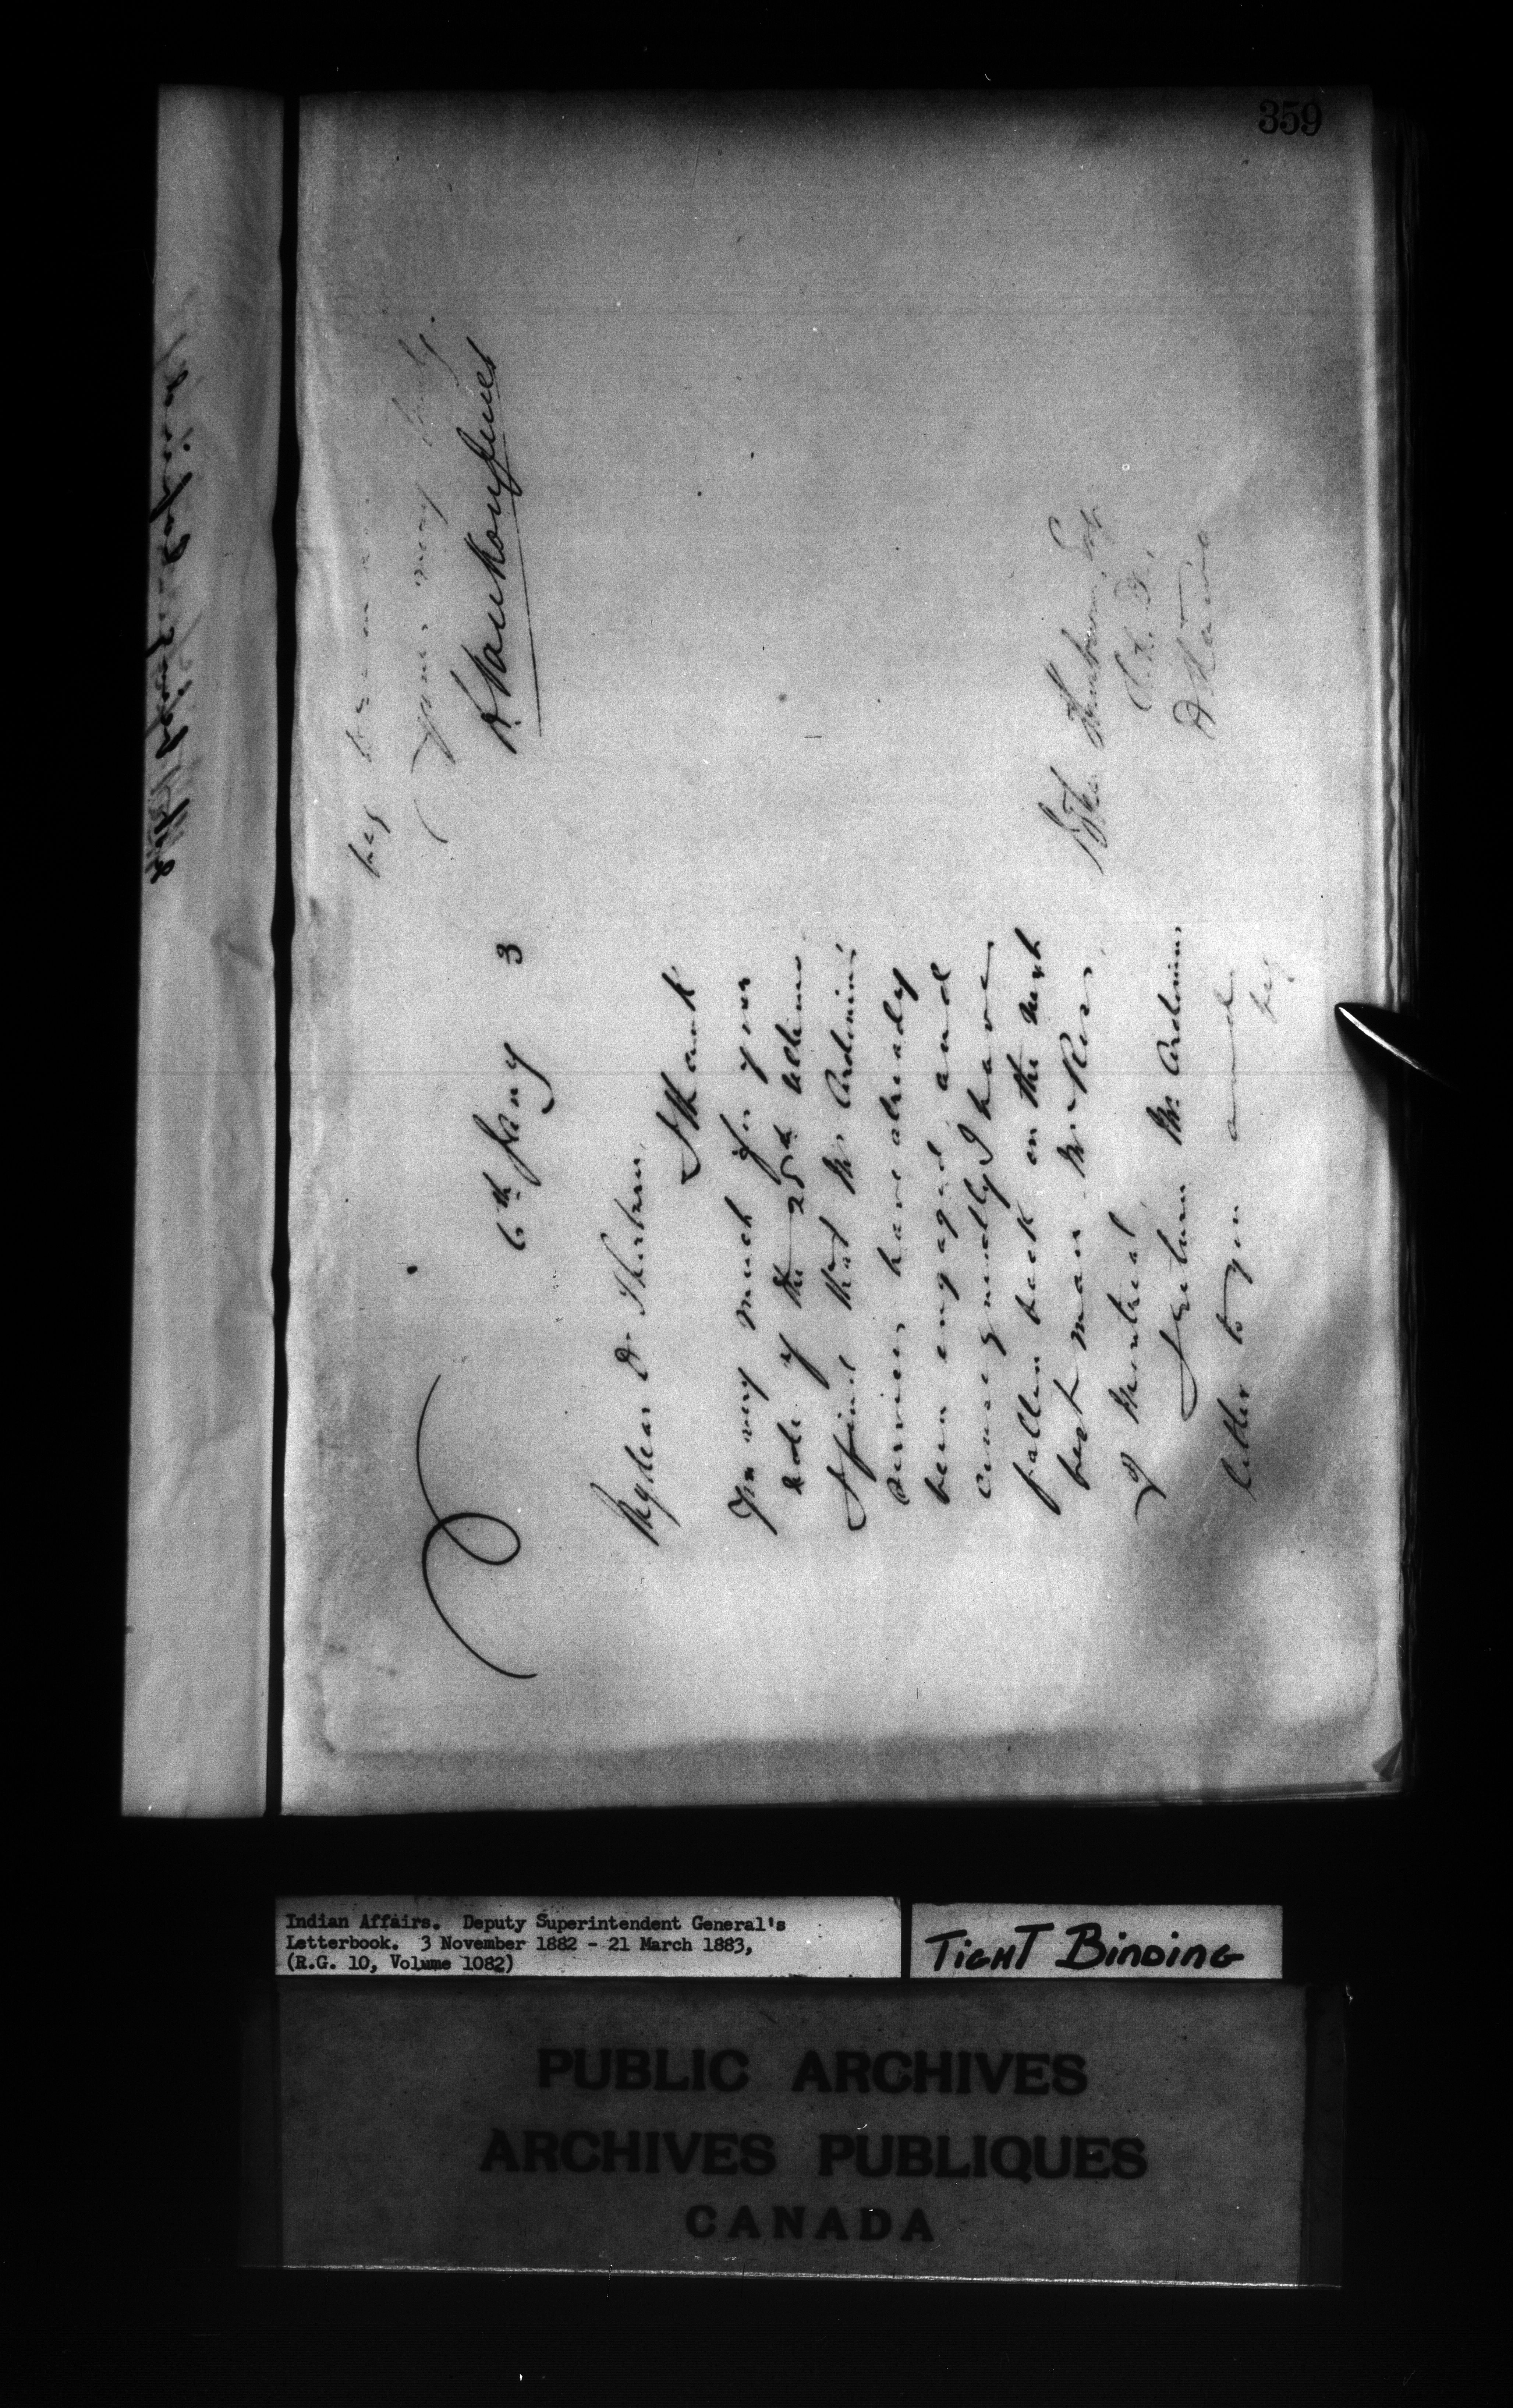 359
6th Jany 3
My dear Dr Thorburn,
I thank
you very much for your
note of the 25th ultimo
I find that Mr Ardouin's
services have already
been engaged and
consequently I have
fallen back on the next
best man
of Montreal
I return Mr Ardouin's
letter to you and
beg
beg
yours very truly
L. Vankoughnet
John Thorburn, Esq
Ottawa
Indian Affairs. Deputy Superintendent General's
Letterbook. 3 November 1882 - 21 March 1883,
(R.G. 10, Volume 1082)
TIGHT BINDING
PUBLIC ARCHIVES
ARCHIVES PUBLIQUES
CANADA